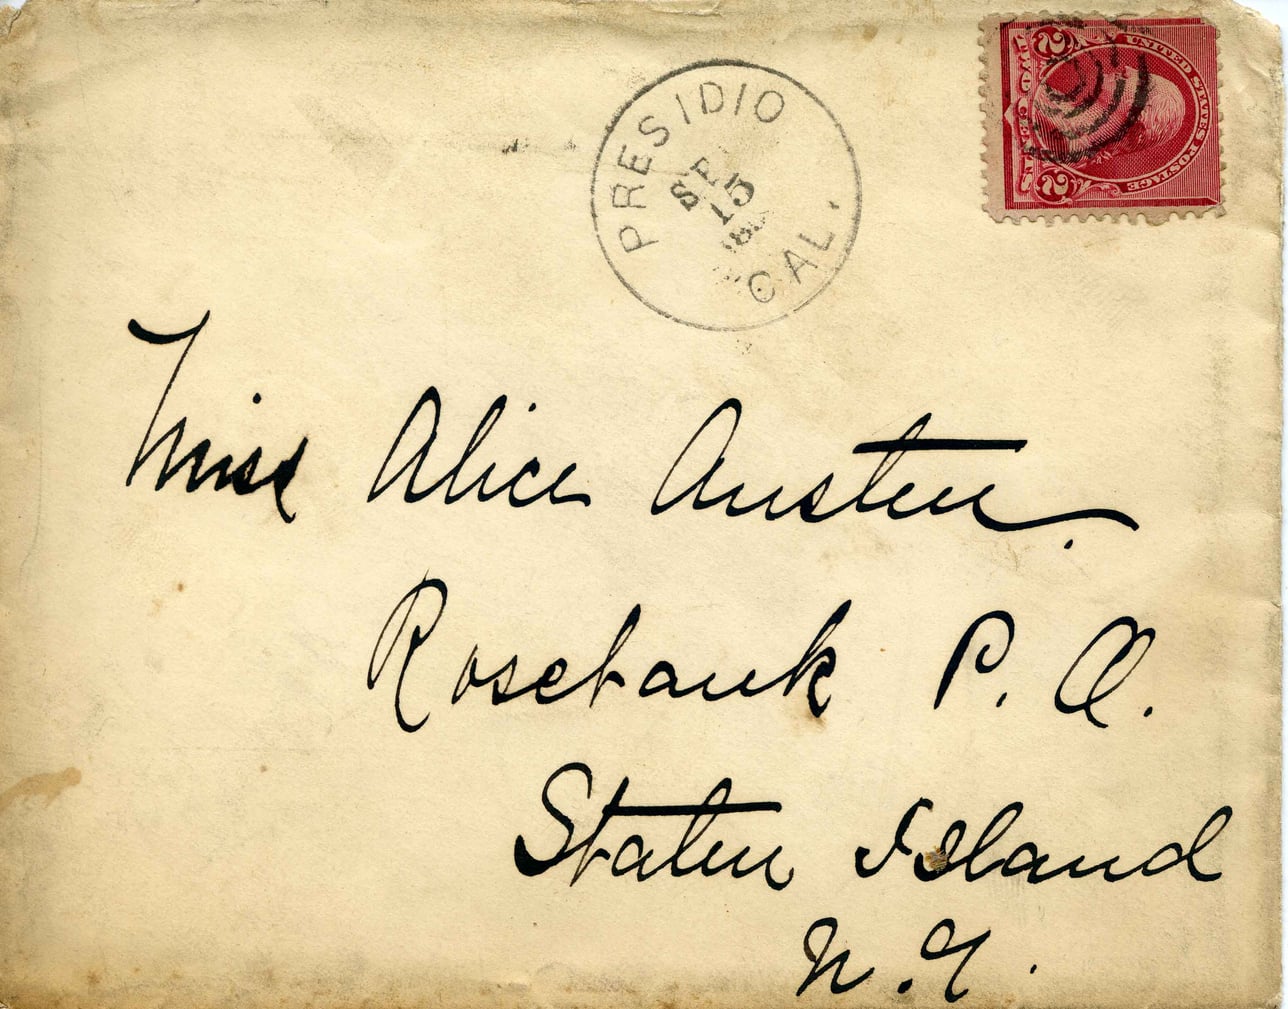 PRESIDIO
SEP
15
CAL.
2 UNITED STATES POSTAGE 2
TWO CENTS
Miss Alice Austen.
Rosebank P. O.
Staten Island
N.Y.